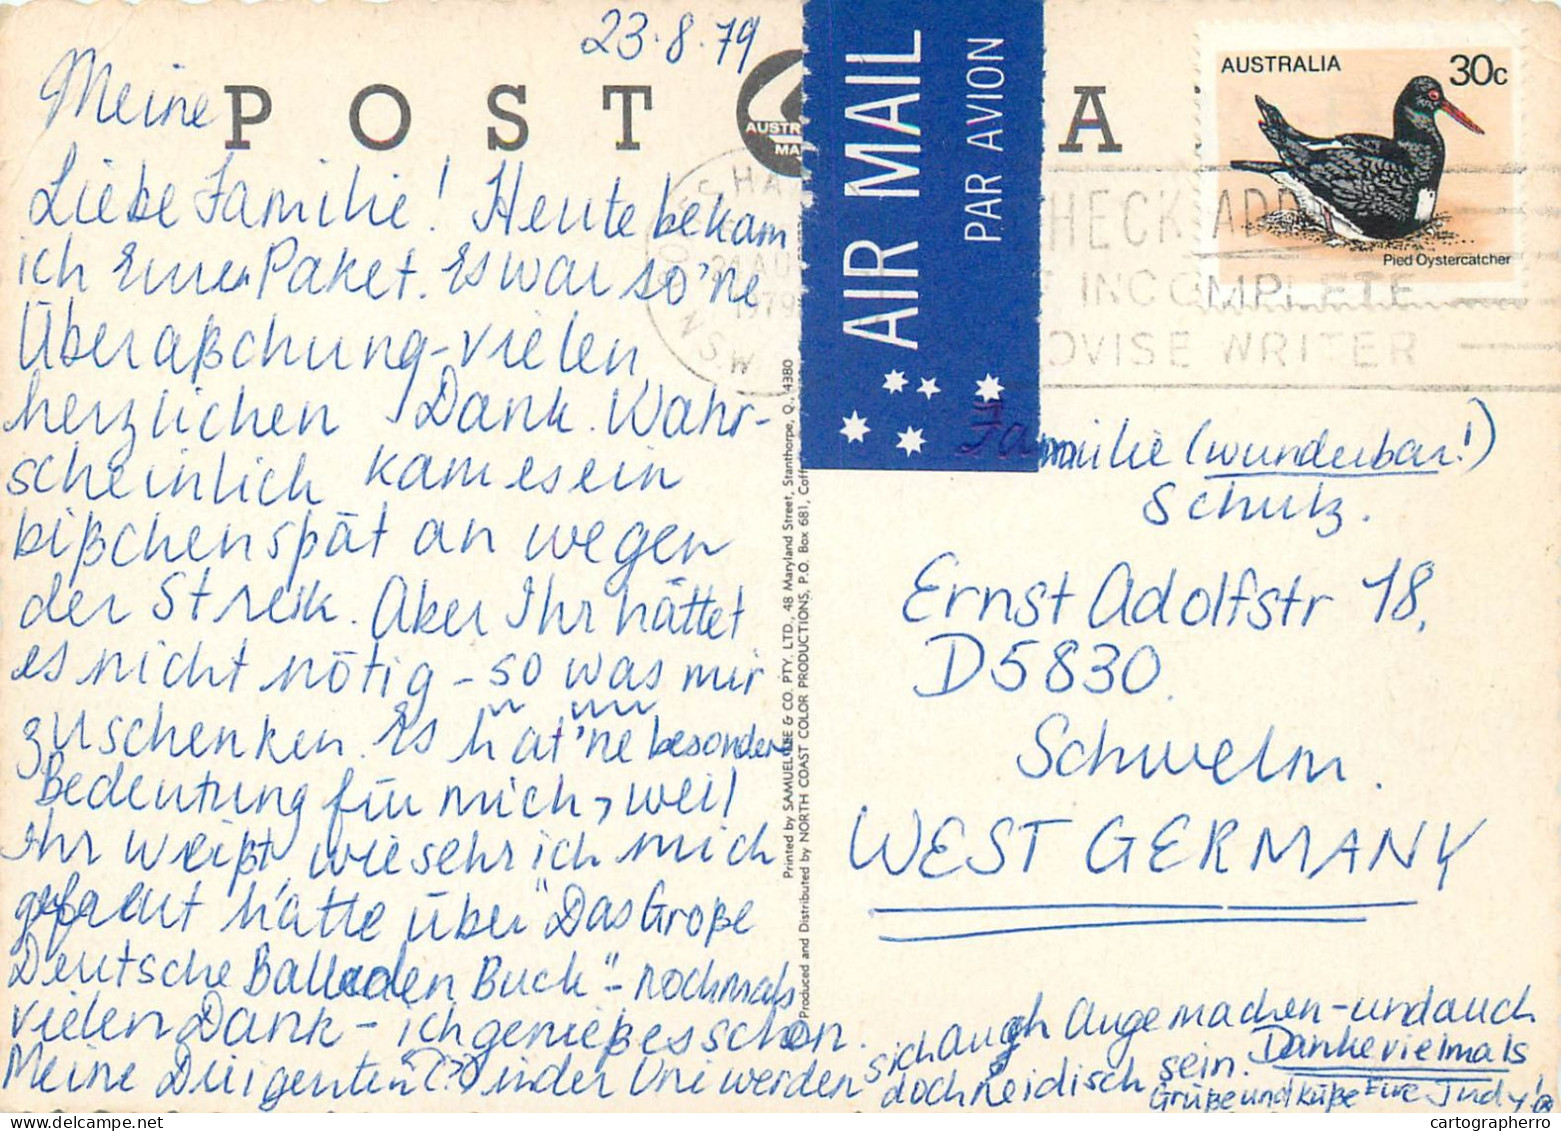 23.8.79
Meine
POST A
AUSTR
MA
AIR MAIL
PAR AVION
AUSTRALIA 30c
Pied Oystercatcher
HECK ADD
INCOMPLETE
OVISE WRITER
21 AU
1979
N.S.W
Liebe Familie! Heute bekam
ich Euren Paket. Es war so'ne
Überaßchung - vielen
herzlichen Dank. Wahr-
scheinlich kam es ein
bißchen spät an wegen
der Streik. Aber Ihr hättet
es nicht nötig - so was mir
zu schenken. Es hat 'ne besondere
Bedeutung für mich, weil
Ihr weißt, wie sehr ich mich
gefreut hätte über "Das Große
Deutsche Balladen Buch" - nochmals
vielen Dank - ich genieß es schon.
Meine Dirigenten (?) in der Uni werden
sich augh Auge machen - und auch
doch neidisch sein. Danke vielmals
Grüße und Küße Eure Judy!
Printed by SAMUEL LEE & CO. PTY. LTD., 48 Maryland Street, Stanthorpe, Q., 4380
Produced and Distributed by NORTH COAST COLOR PRODUCTIONS, P.O. Box 681, Coff
Familie (wunderbar!)
Schulz.
Ernst Adolfstr 18,
D5830.
Schwelm.
WEST GERMANY
cartographerro